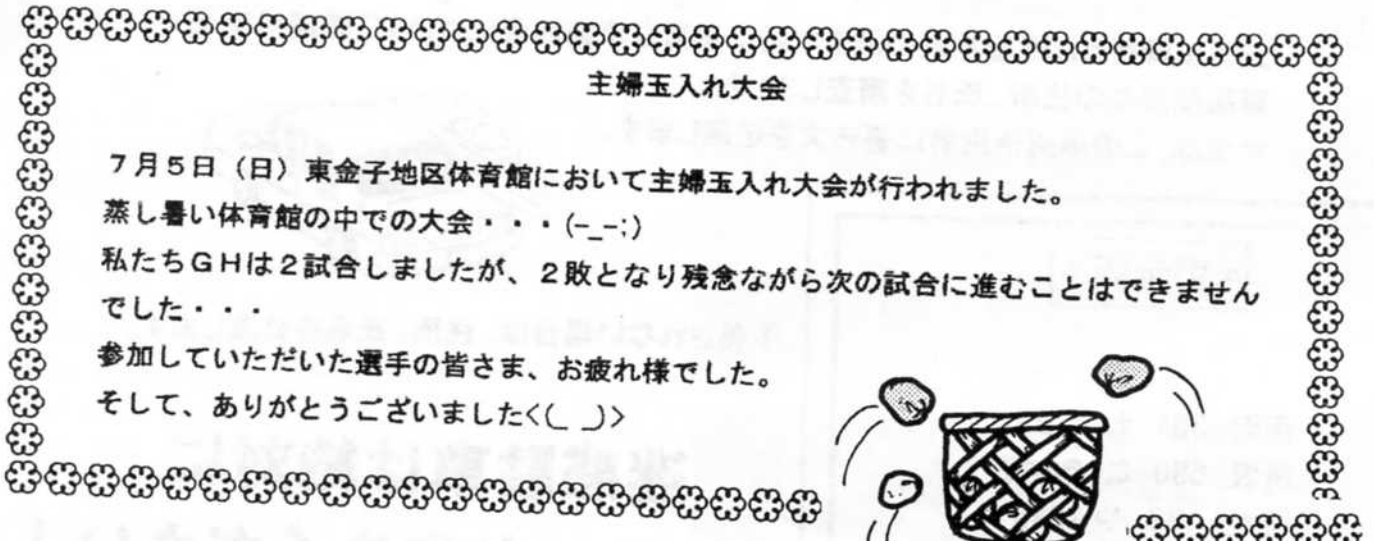 主婦玉入れ大会
7月5日（日）東金子地区体育館において主婦玉入れ大会が行われました。
蒸し暑い体育館の中での大会・・・(-_-;)
私たちGHは2試合しましたが、2敗となり残念ながら次の試合に進むことはできません
でした・・・
参加していただいた選手の皆さま、お疲れ様でした。
そして、ありがとうございました<(_ _)>